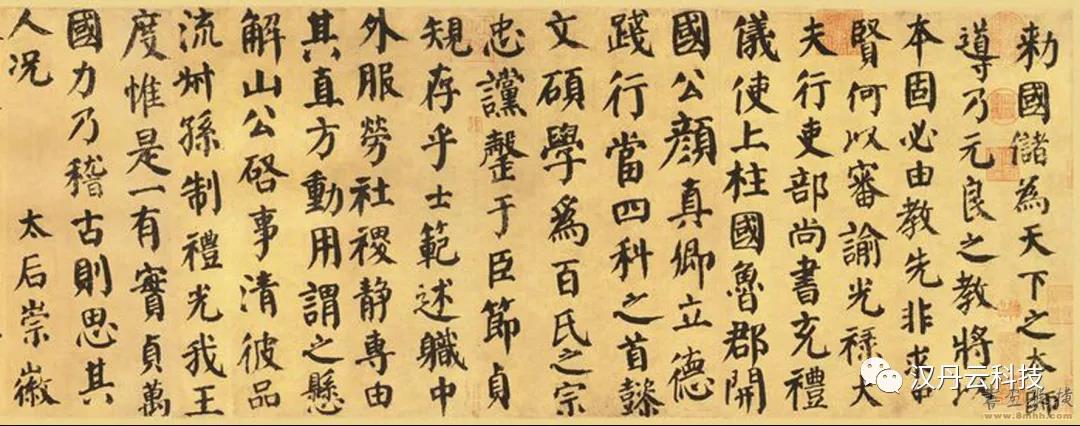 勑國儲為天下之夲師
導乃元良之教將以
本固必由教先非求
賢何以審諭光祿大
夫行吏部尚書充禮
儀使上柱國魯郡開
國公顏真卿立德
踐行當四科之首懿
文碩學為百氏之宗
忠讜罄于臣節貞
規存乎士範述職中
外服勞社稷靜專由
其直方動用謂之懸
解山公啓事清彼品
流叔孫制禮光我王
度惟是一有實貞萬
國力乃稽古則思其
人況 太后崇徽
汉丹云科技
www.8mhh.com